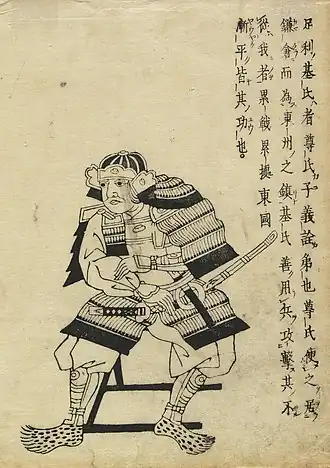 足利基氏者尊氏子義詮弟也尊氏使之居
鎌倉而為東州之鎮基氏善用兵攻擊其不
從我者累戰累捷東國
漸平皆其功也。